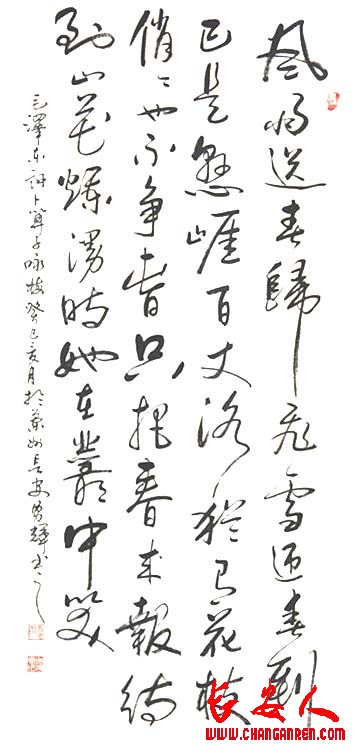 風雨送春歸飛雪迎春到
已是懸崖百丈冰猶有花枝
俏〻也不爭春只把春來報待
到山花爛漫時她在叢中笑
毛澤東詞卜算子咏梅癸巳亥月於蘭州長安輝书
长安人
WWW.CHANGANREN.COM